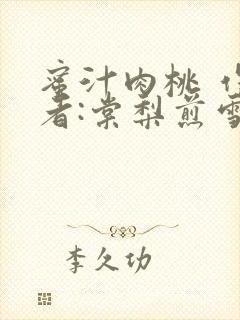 蜜汁肉桃 作
者:棠梨煎雪
李久功